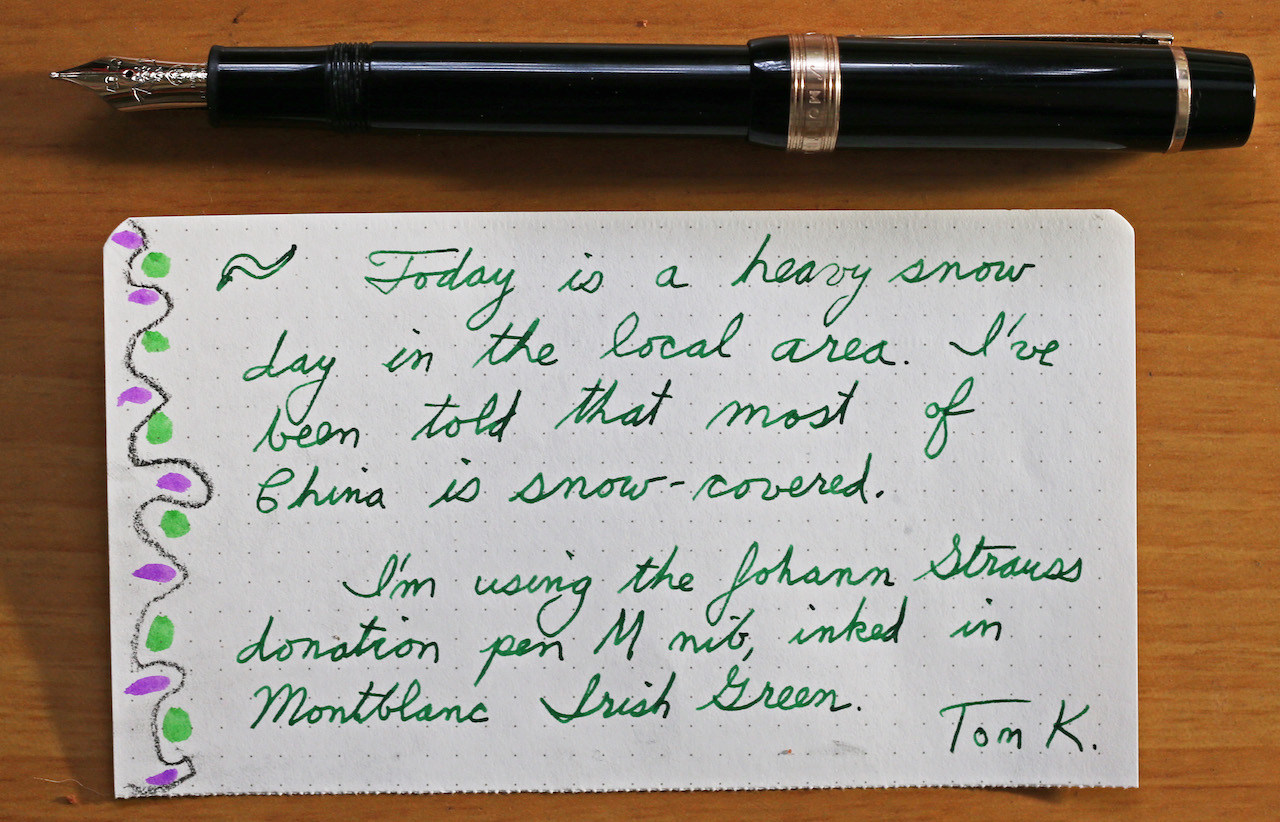 ~ Today is a heavy snow
day in the local area. I've
been told that most of
China is snow-covered.
I'm using the Johann Strauss
donation pen M nib, inked in
Montblanc Irish Green.
Tom K.